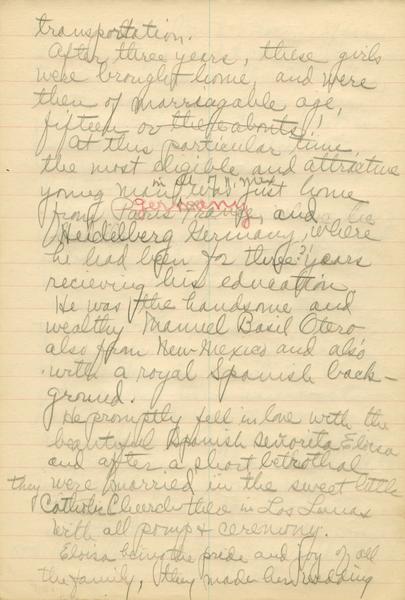 transportation.
After three years, these girls
were brought home, and were
then of marriagable age,
fifteen or thereabouts!
At this particular time,
the most eligible and attractive
young man in N. Mex
was just home
germany
from Paris France, and
Heidelberg Germany, where
he had been for three?! years
recieving his education.
He was the handsome and
wealthy Manuel Basil Otero
also from New Mexico and also
with a royal Spanish back-
ground.
He promptly fell in love with the
beautiful Spanish Señorita Eloisa
and after a short betrothal
they were married in the sweet little
Catholic Church there in Los Lunas
with all pomp & ceremony.
Eloisa being the pride and joy of all
the family, they made her wedding